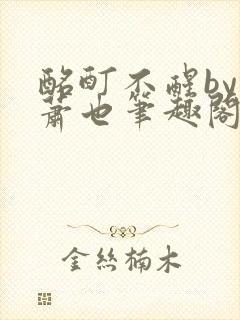 酩酊不醒by
萧也笔趣阁
金丝楠木